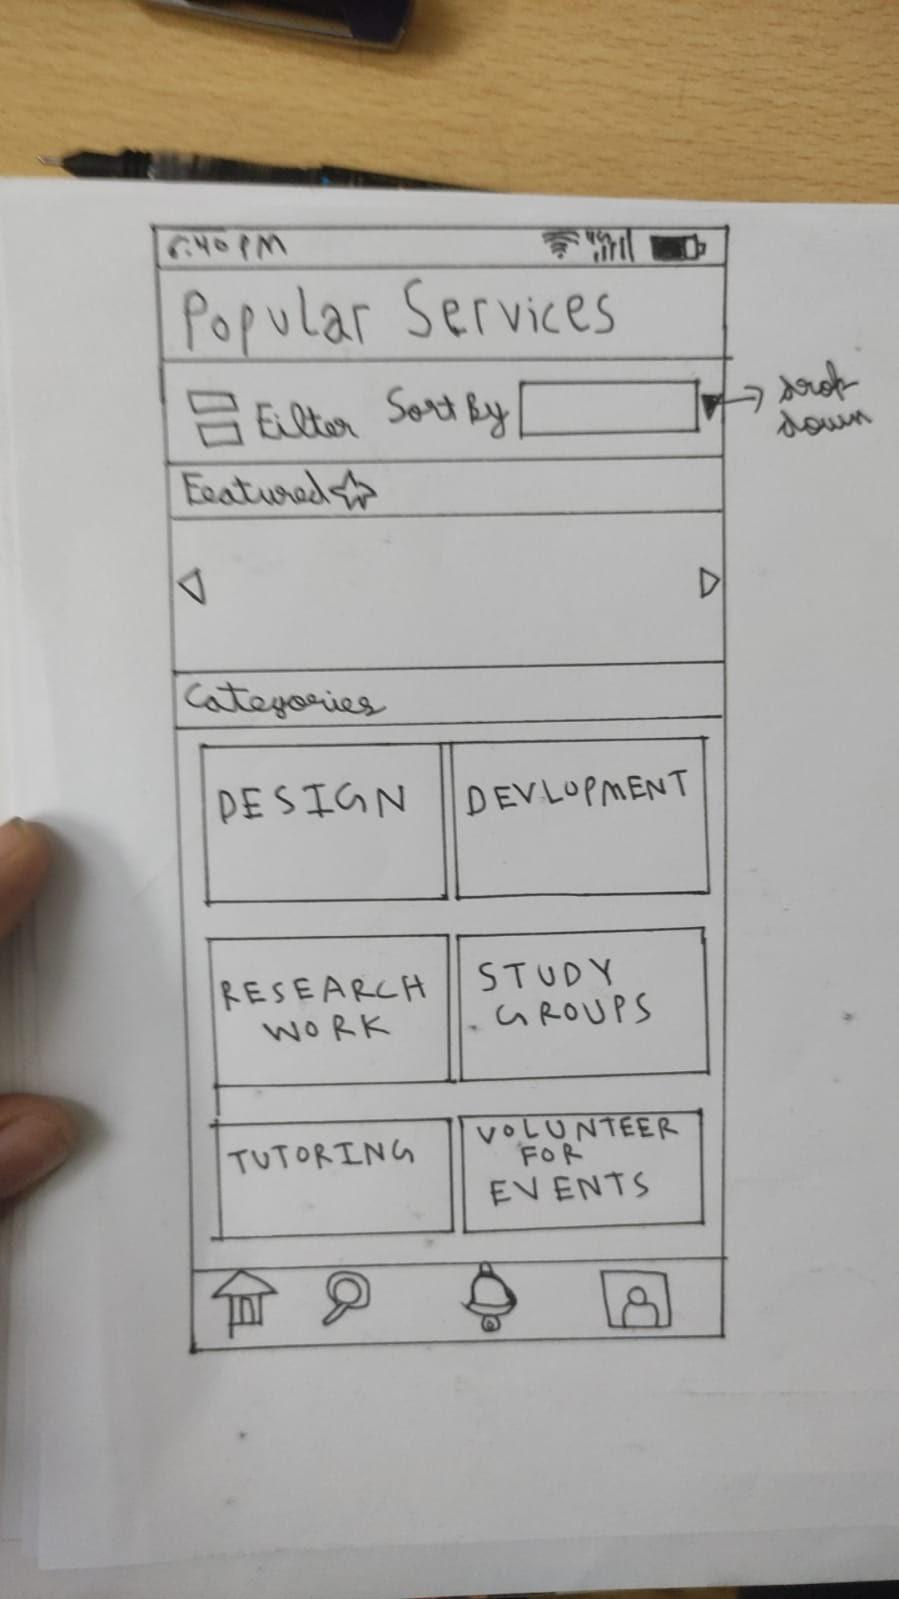 6:40 PM 4G
Popular Services
Filter Sort By
drop
down
Featured
Categories
DESIGN
DEVLOPMENT
RESEARCH
WORK
STUDY
GROUPS
TUTORING
VOLUNTEER
FOR
EVENTS